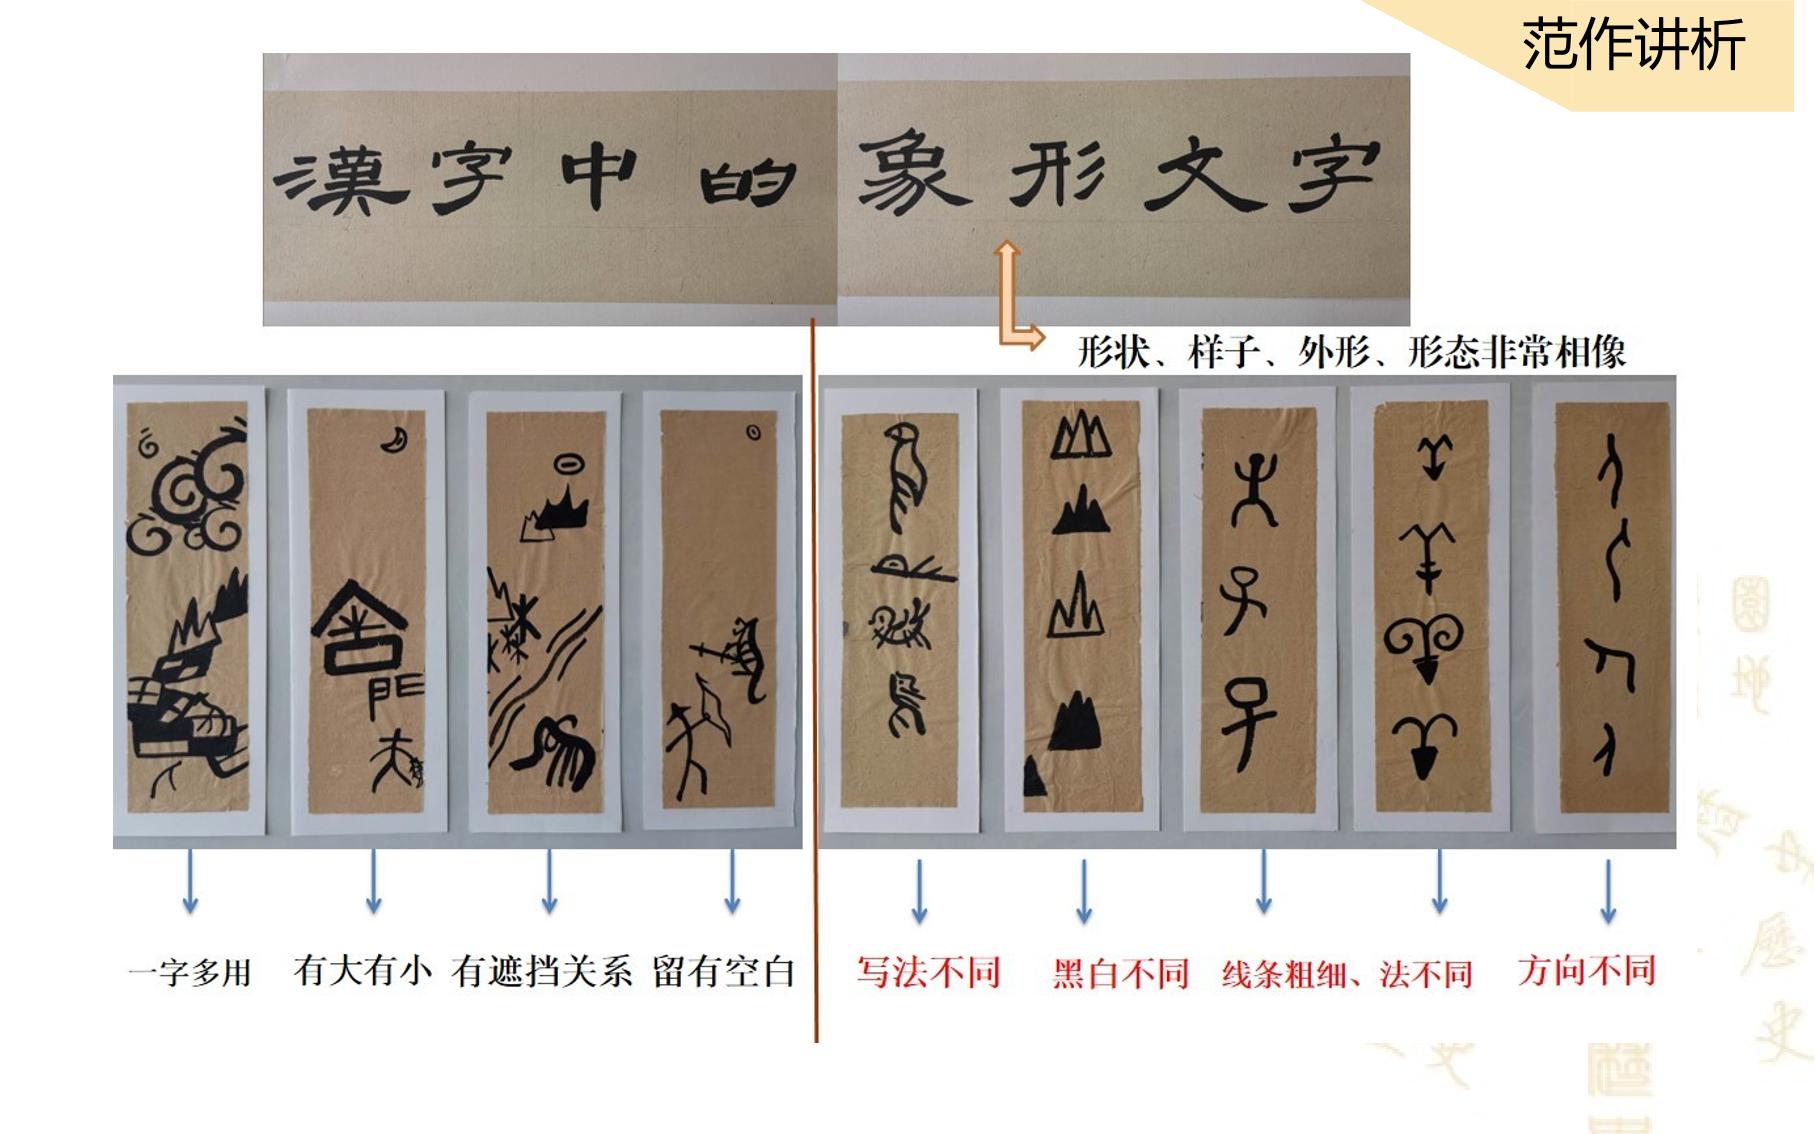 范作讲析
漢字中的象形文字
形状、样子、外形、形态非常相像
一字多用 有大有小 有遮挡关系 留有空白 写法不同 黑白不同 线条粗细、法不同 方向不同